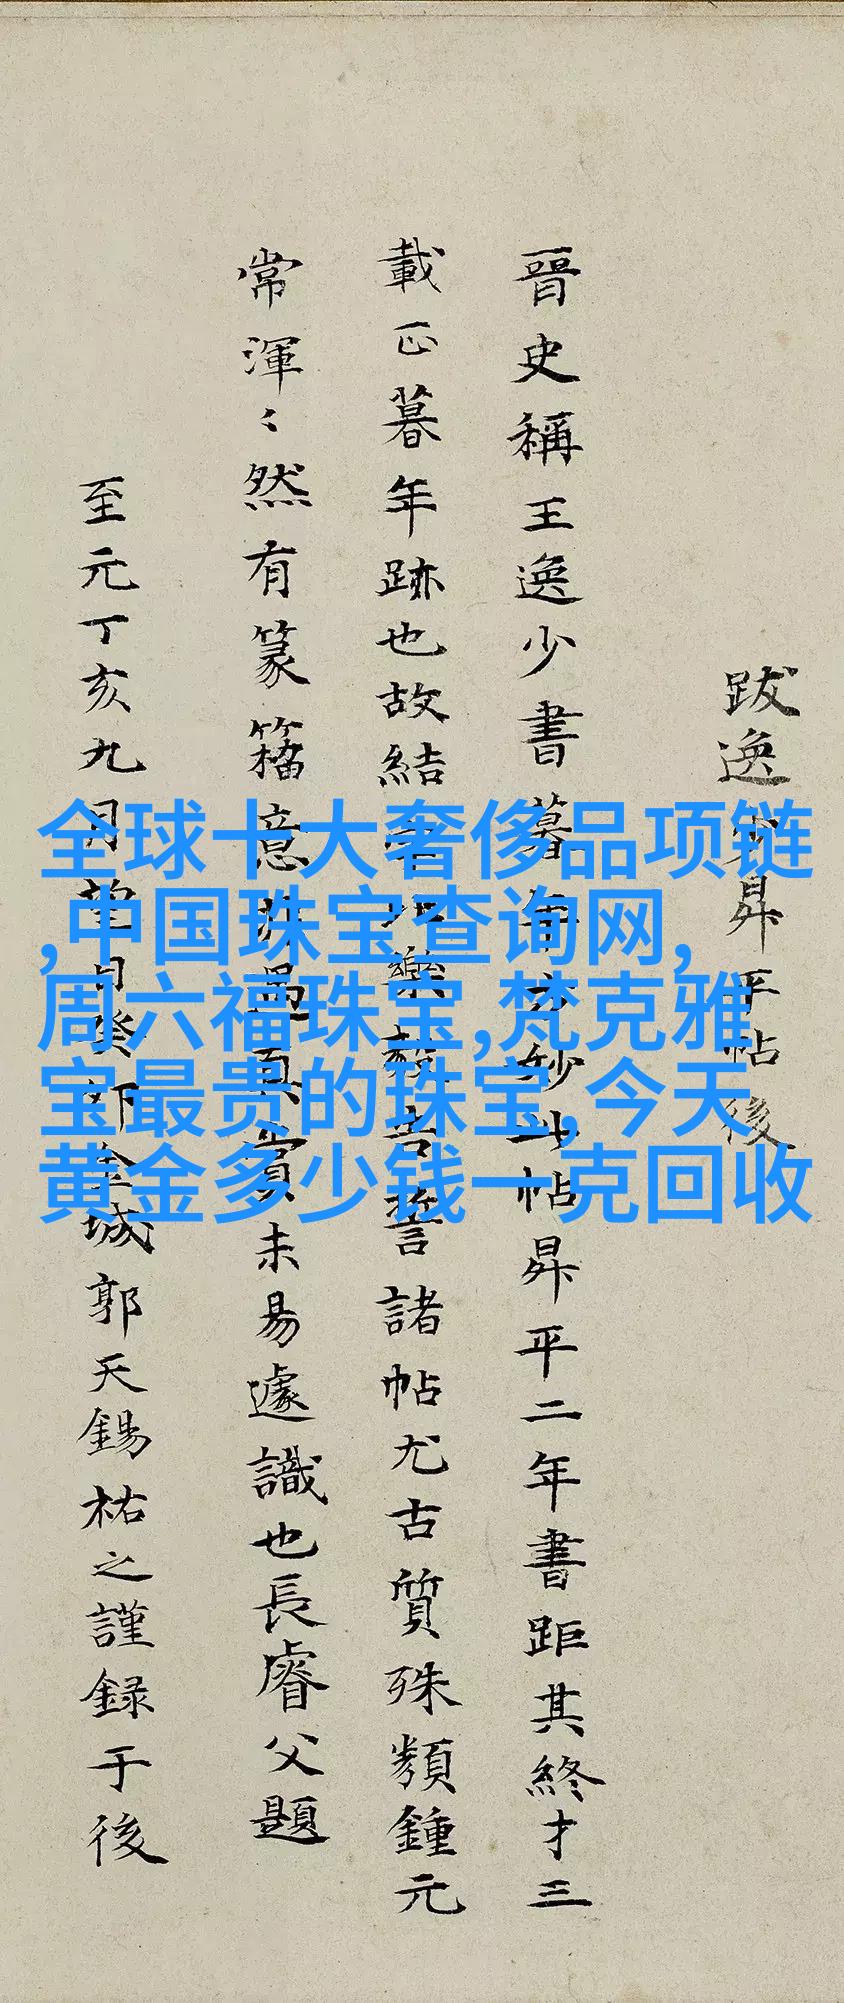 跋逸少昇平帖後
晉史稱王逸少書暮年方妙此帖昇平二年書距其終才三
載正暮年跡也故結字比樂毅告誓諸帖尤古質殊類鍾元
常渾〻然有篆籀意非遇真賞未易遽識也長睿父題
至元丁亥九月望日癸卯金城郭天錫祐之謹録于後
全球十大奢侈品项链
,中国珠宝查询网,
周六福珠宝,梵克雅
宝最贵的珠宝,今天
黄金多少钱一克回收